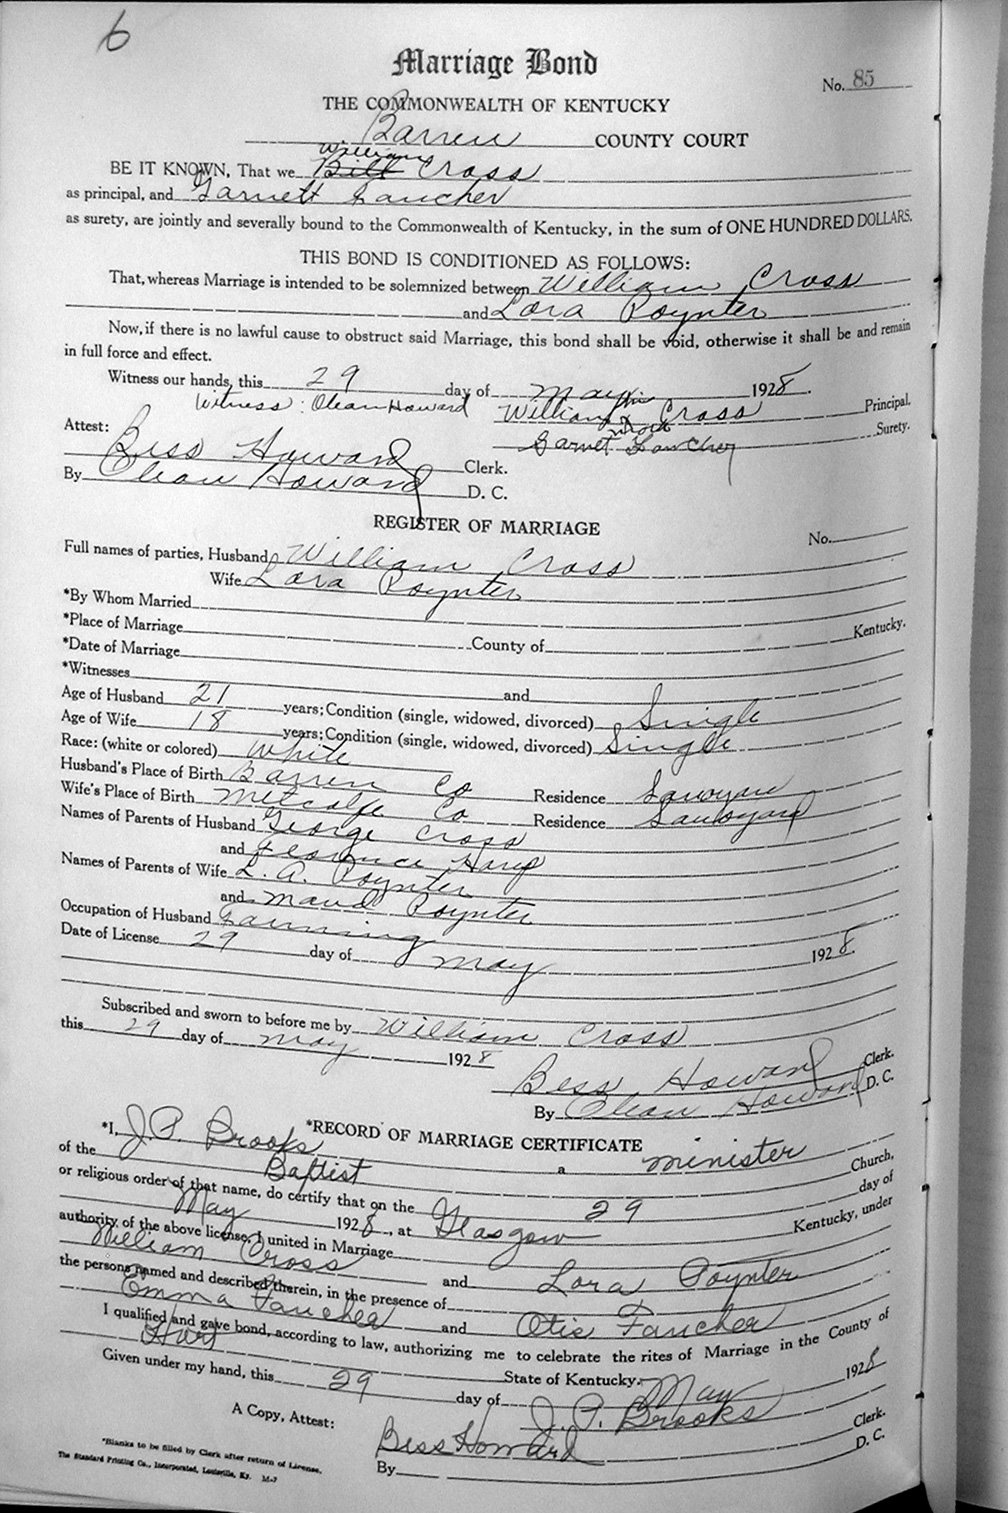 6
Marriage Bond
No. 85
THE COMMONWEALTH OF KENTUCKY
Barren COUNTY COURT
William
BE IT KNOWN, That we Bill Cross
as principal, and Garnett Fancher
as surety, are jointly and severally bound to the Commonwealth of Kentucky, in the sum of ONE HUNDRED DOLLARS.
THIS BOND IS CONDITIONED AS FOLLOWS:
That, whereas Marriage is intended to be solemnized between William Cross
and Lora Poynter
Now, if there is no lawful cause to obstruct said Marriage, this bond shall be void, otherwise it shall be and remain
in full force and effect.
Witness our hands, this 29 day of May 1928.
Witness: Olean Howard William his Cross Principal.
mark
Attest: Garnet Fancher Surety.
Bess Howard Clerk.
By Olean Howard D. C.
REGISTER OF MARRIAGE
No.
Full names of parties, Husband William Cross
Wife Lora Poynter
*By Whom Married
*Place of Marriage County of Kentucky.
*Date of Marriage
*Witnesses and
Age of Husband 21 years; Condition (single, widowed, divorced) Single
Age of Wife 18 years; Condition (single, widowed, divorced) Single
Race: (white or colored) White
Husband's Place of Birth Barren Co Residence Savoyard
Wife's Place of Birth Metcalfe Co Residence Savoyard
Names of Parents of Husband George Cross
and Florence
Names of Parents of Wife L. A. Poynter
and Maud Poynter
Occupation of Husband Farming
Date of License 29 day of May 1928.
Subscribed and sworn to before me by William Cross
this 29 day of May 1928
Bess Howard Clerk.
By Olean Howard D. C.
*RECORD OF MARRIAGE CERTIFICATE
*I, J. P. Brooks a minister
of the Baptist Church,
or religious order of that name, do certify that on the 29 day of
May 1928, at Glasgow Kentucky, under
authority of the above license, I united in Marriage
William Cross and Lora Poynter
the persons named and described therein, in the presence of
Emma Fancher and Otis Fancher
I qualified and gave bond, according to law, authorizing me to celebrate the rites of Marriage in the County of
Hart State of Kentucky.
Given under my hand, this 29 day of May 1928
J. P. Brooks
A Copy, Attest: Bess Howard Clerk.
By D. C.
*Blanks to be filled by Clerk after return of License.
The Standard Printing Co., Incorporated, Louisville, Ky. M-7